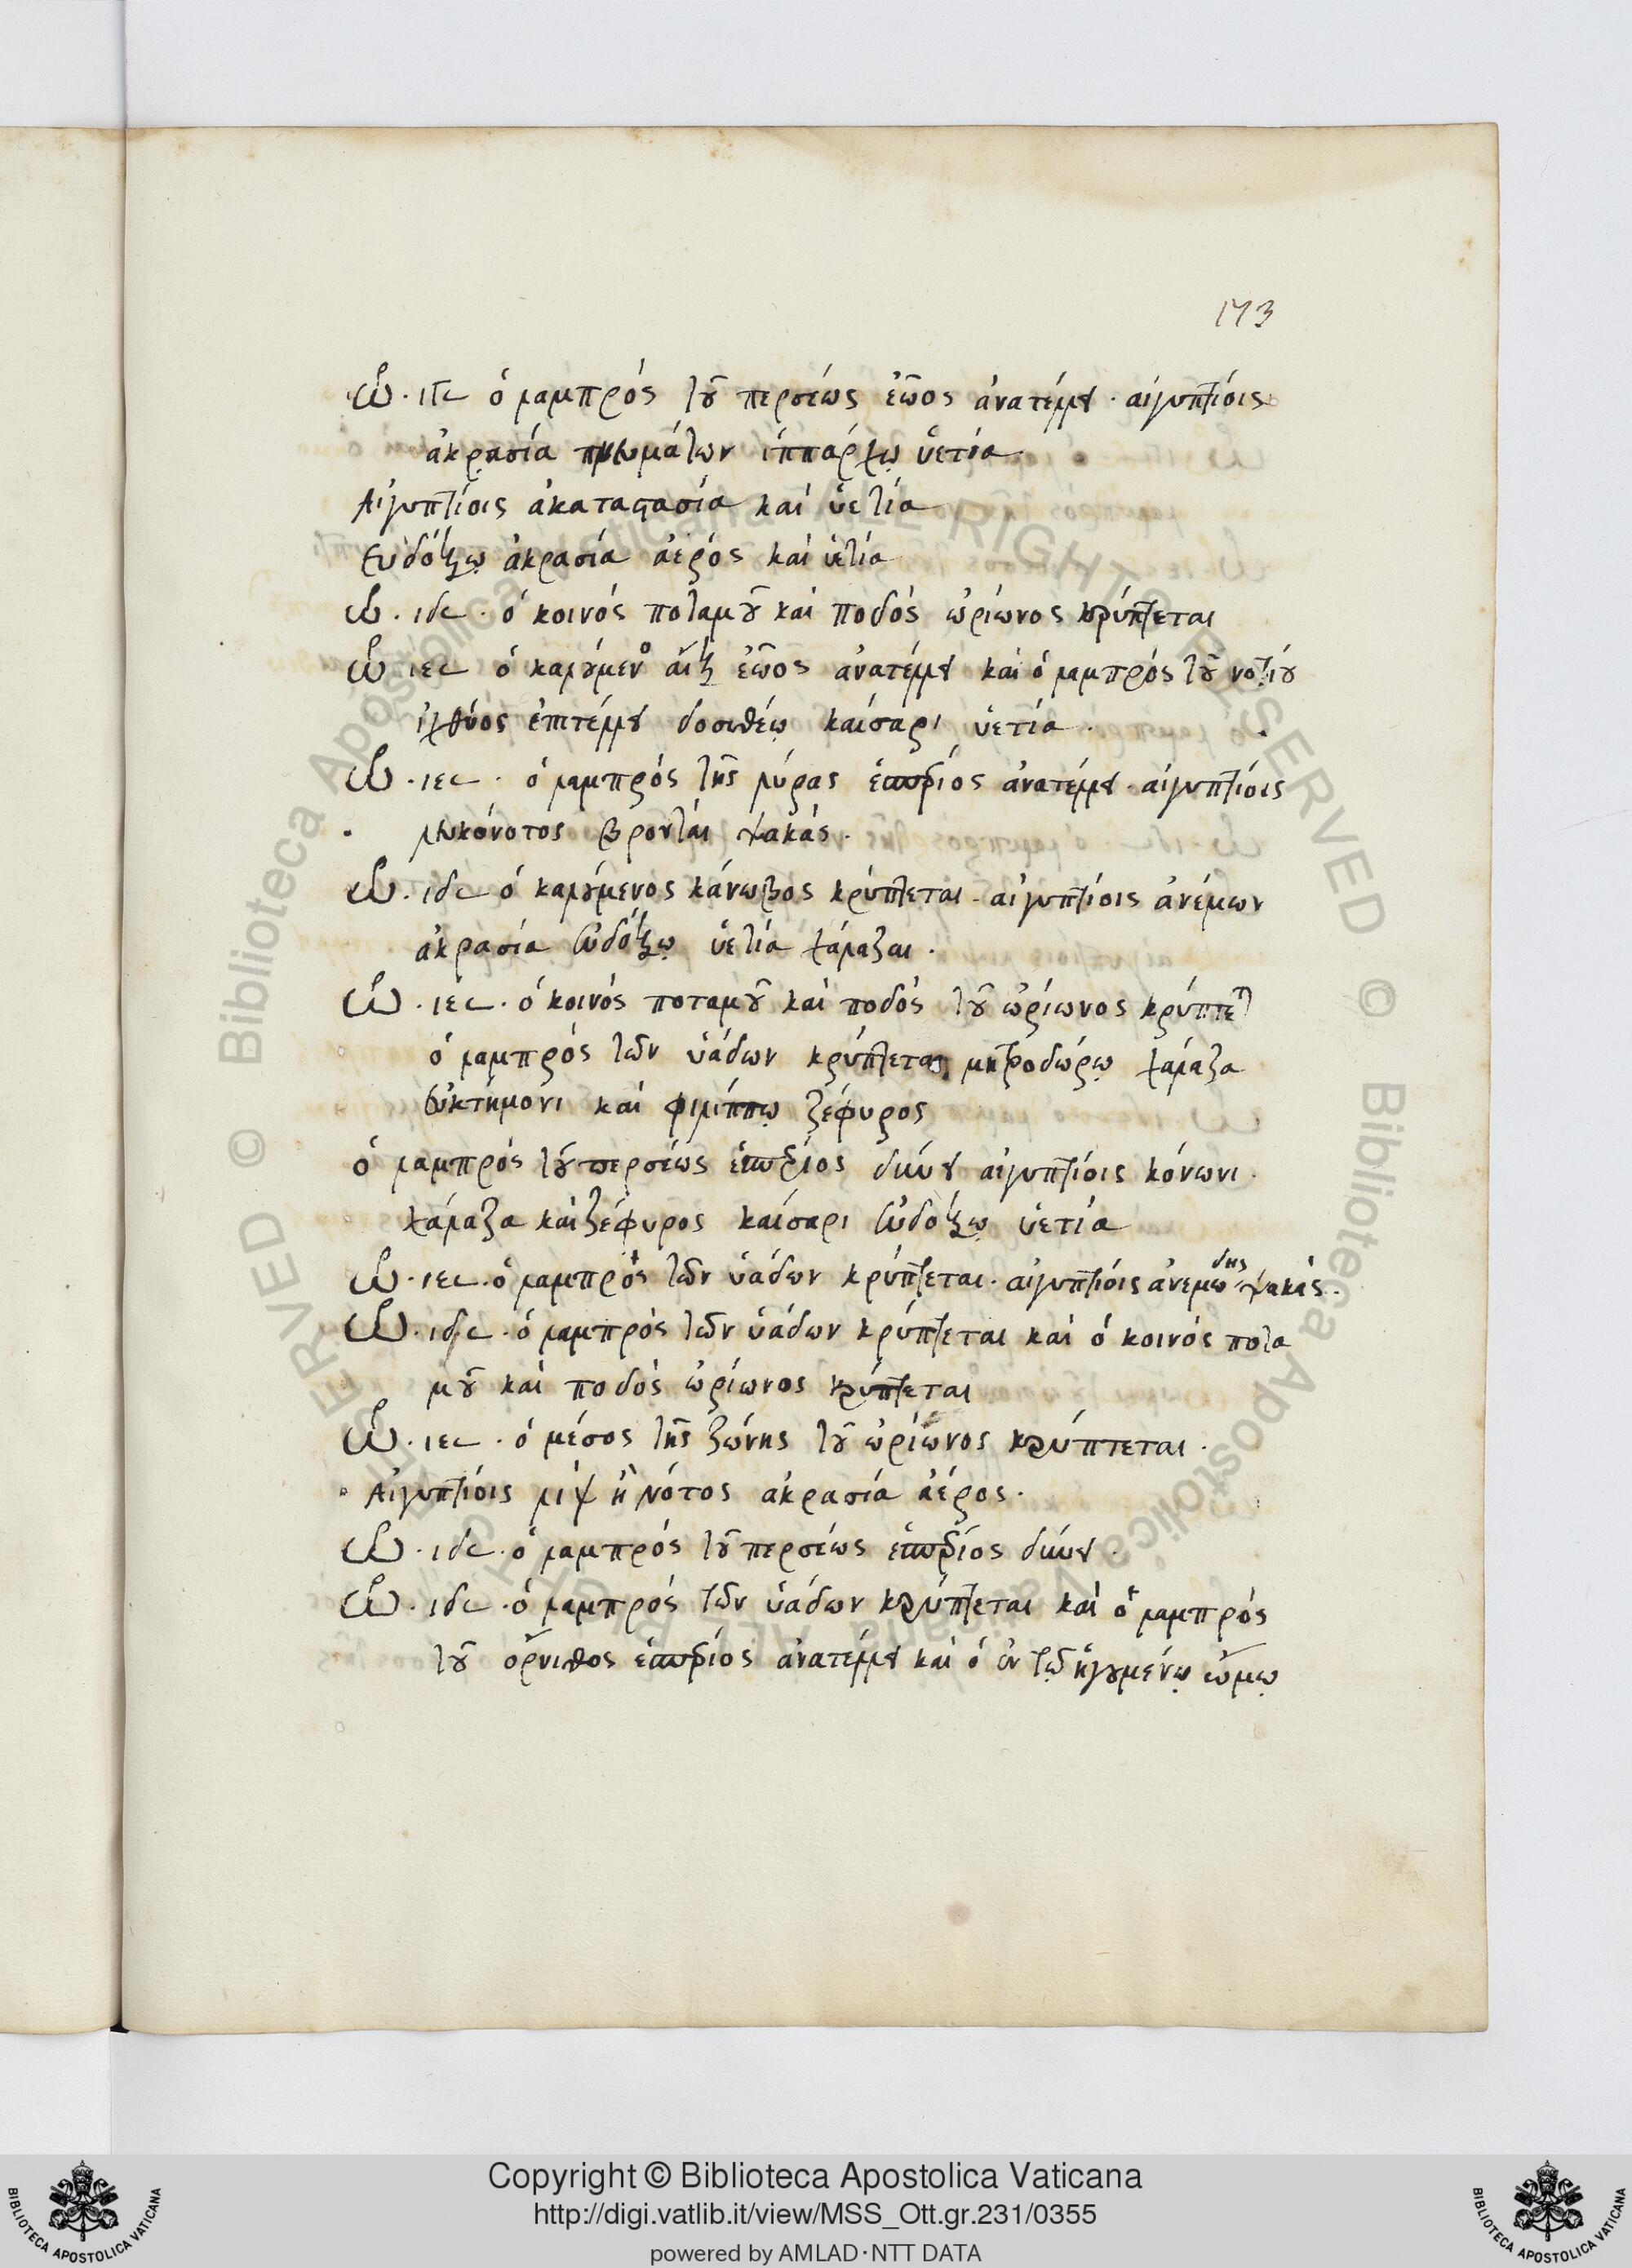 173
ὥ. ιγς ὁ λαμπρὸς τοῦ περσέως ἑῷος ἀνατέλλει · αἰγυπτίοις
ἀκρασία πνευμάτων ἱππάρχῳ ὑετία
Αἰγυπτίοις ἀκαταστασία καὶ ὑετία
Εὐδόξῳ ἀκρασία ἀέρος καὶ ὑετία
ὥ. ιδς · ὁ κοινὸς ποταμοῦ καὶ ποδὸς ὠρίωνος κρύπτεται
ὥ. ιες ὁ καλούμενο αἲξ ἑῷος ἀνατέλλει καὶ ὁ λαμπρὸς τοῦ νοτίου
ἰχθύος ἐπιτέλλει δοσιθέῳ καίσαρι ὑετία ·
ὥ. ιες · ὁ λαμπρὸς τῆς λύρας ἑσπέριος ἀνατέλλει · αἰγυπτίοις
λευκόνοτος βρονταὶ ψακάς ·
ὥ. ιδς ὁ καλούμενος κάνωβος κρύπτεται · αἰγυπτίοις ἀνέμων
ἀκρασία εὐδόξῳ ὑετία χάλαζαι ·
ὥ. ιες · ὁ κοινὸς ποταμοῦ καὶ ποδὸς τοῦ ὠρίωνος κρύπτετ
ὁ λαμπρὸς τῶν ὑάδων κρύπτεται μητροδώρῳ χάλαζα
εὐκτήμονι καὶ φιλίππῳ ζέφυρος
ὁ λαμπρὸς τοῦ περσέως ἑσπέριος δύνει αἰγυπτίοις κόνωνι ·
χάλαζα καὶ ζέφυρος καίσαρι εὐδόξῳ ὑετία
ὥ. ιες · ὁ λαμπρὸς τῶν ὑάδων κρύπτεται · αἰγυπτίοις ἀνεμώδης ψακάς ·
ὥ. ιδς · ὁ λαμπρὸς τῶν ὑάδων κρύπτεται καὶ ὁ κοινὸς ποτα
μοῦ καὶ ποδὸς ὠρίωνος κρύπτεται
ὥ. ιες · ὁ μέσος τῆς ζώνης τοῦ ὠρίωνος κρύπτεται ·
Αἰγυπτίοις λὶψ ἢ νότος ἀκρασία ἀέρος ·
ὥ. ιδς · ὁ λαμπρὸς τοῦ περσέως ἑσπέριος δύνει ·
ὥ. ιδς · ὁ λαμπρὸς τῶν ὑάδων κρύπτεται καὶ ὁ λαμπρὸς
τοῦ ὄρνιθος ἑσπέριος ἀνατέλλει καὶ ὁ ἐν τῷ ἡγουμένῳ ὤμῳ
Biblioteca Apostolica Vaticana ALL RIGHTS RESERVED ©
Copyright © Biblioteca Apostolica Vaticana
http://digi.vatlib.it/view/MSS_Ott.gr.231/0355
powered by AMLAD·NTT DATA
BIBLIOTECA APOSTOLICA VATICANA
BIBLIOTECA APOSTOLICA VATICANA